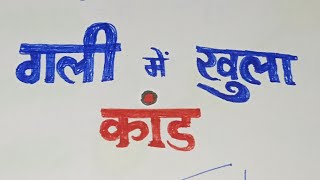 गली में खुला
कांड